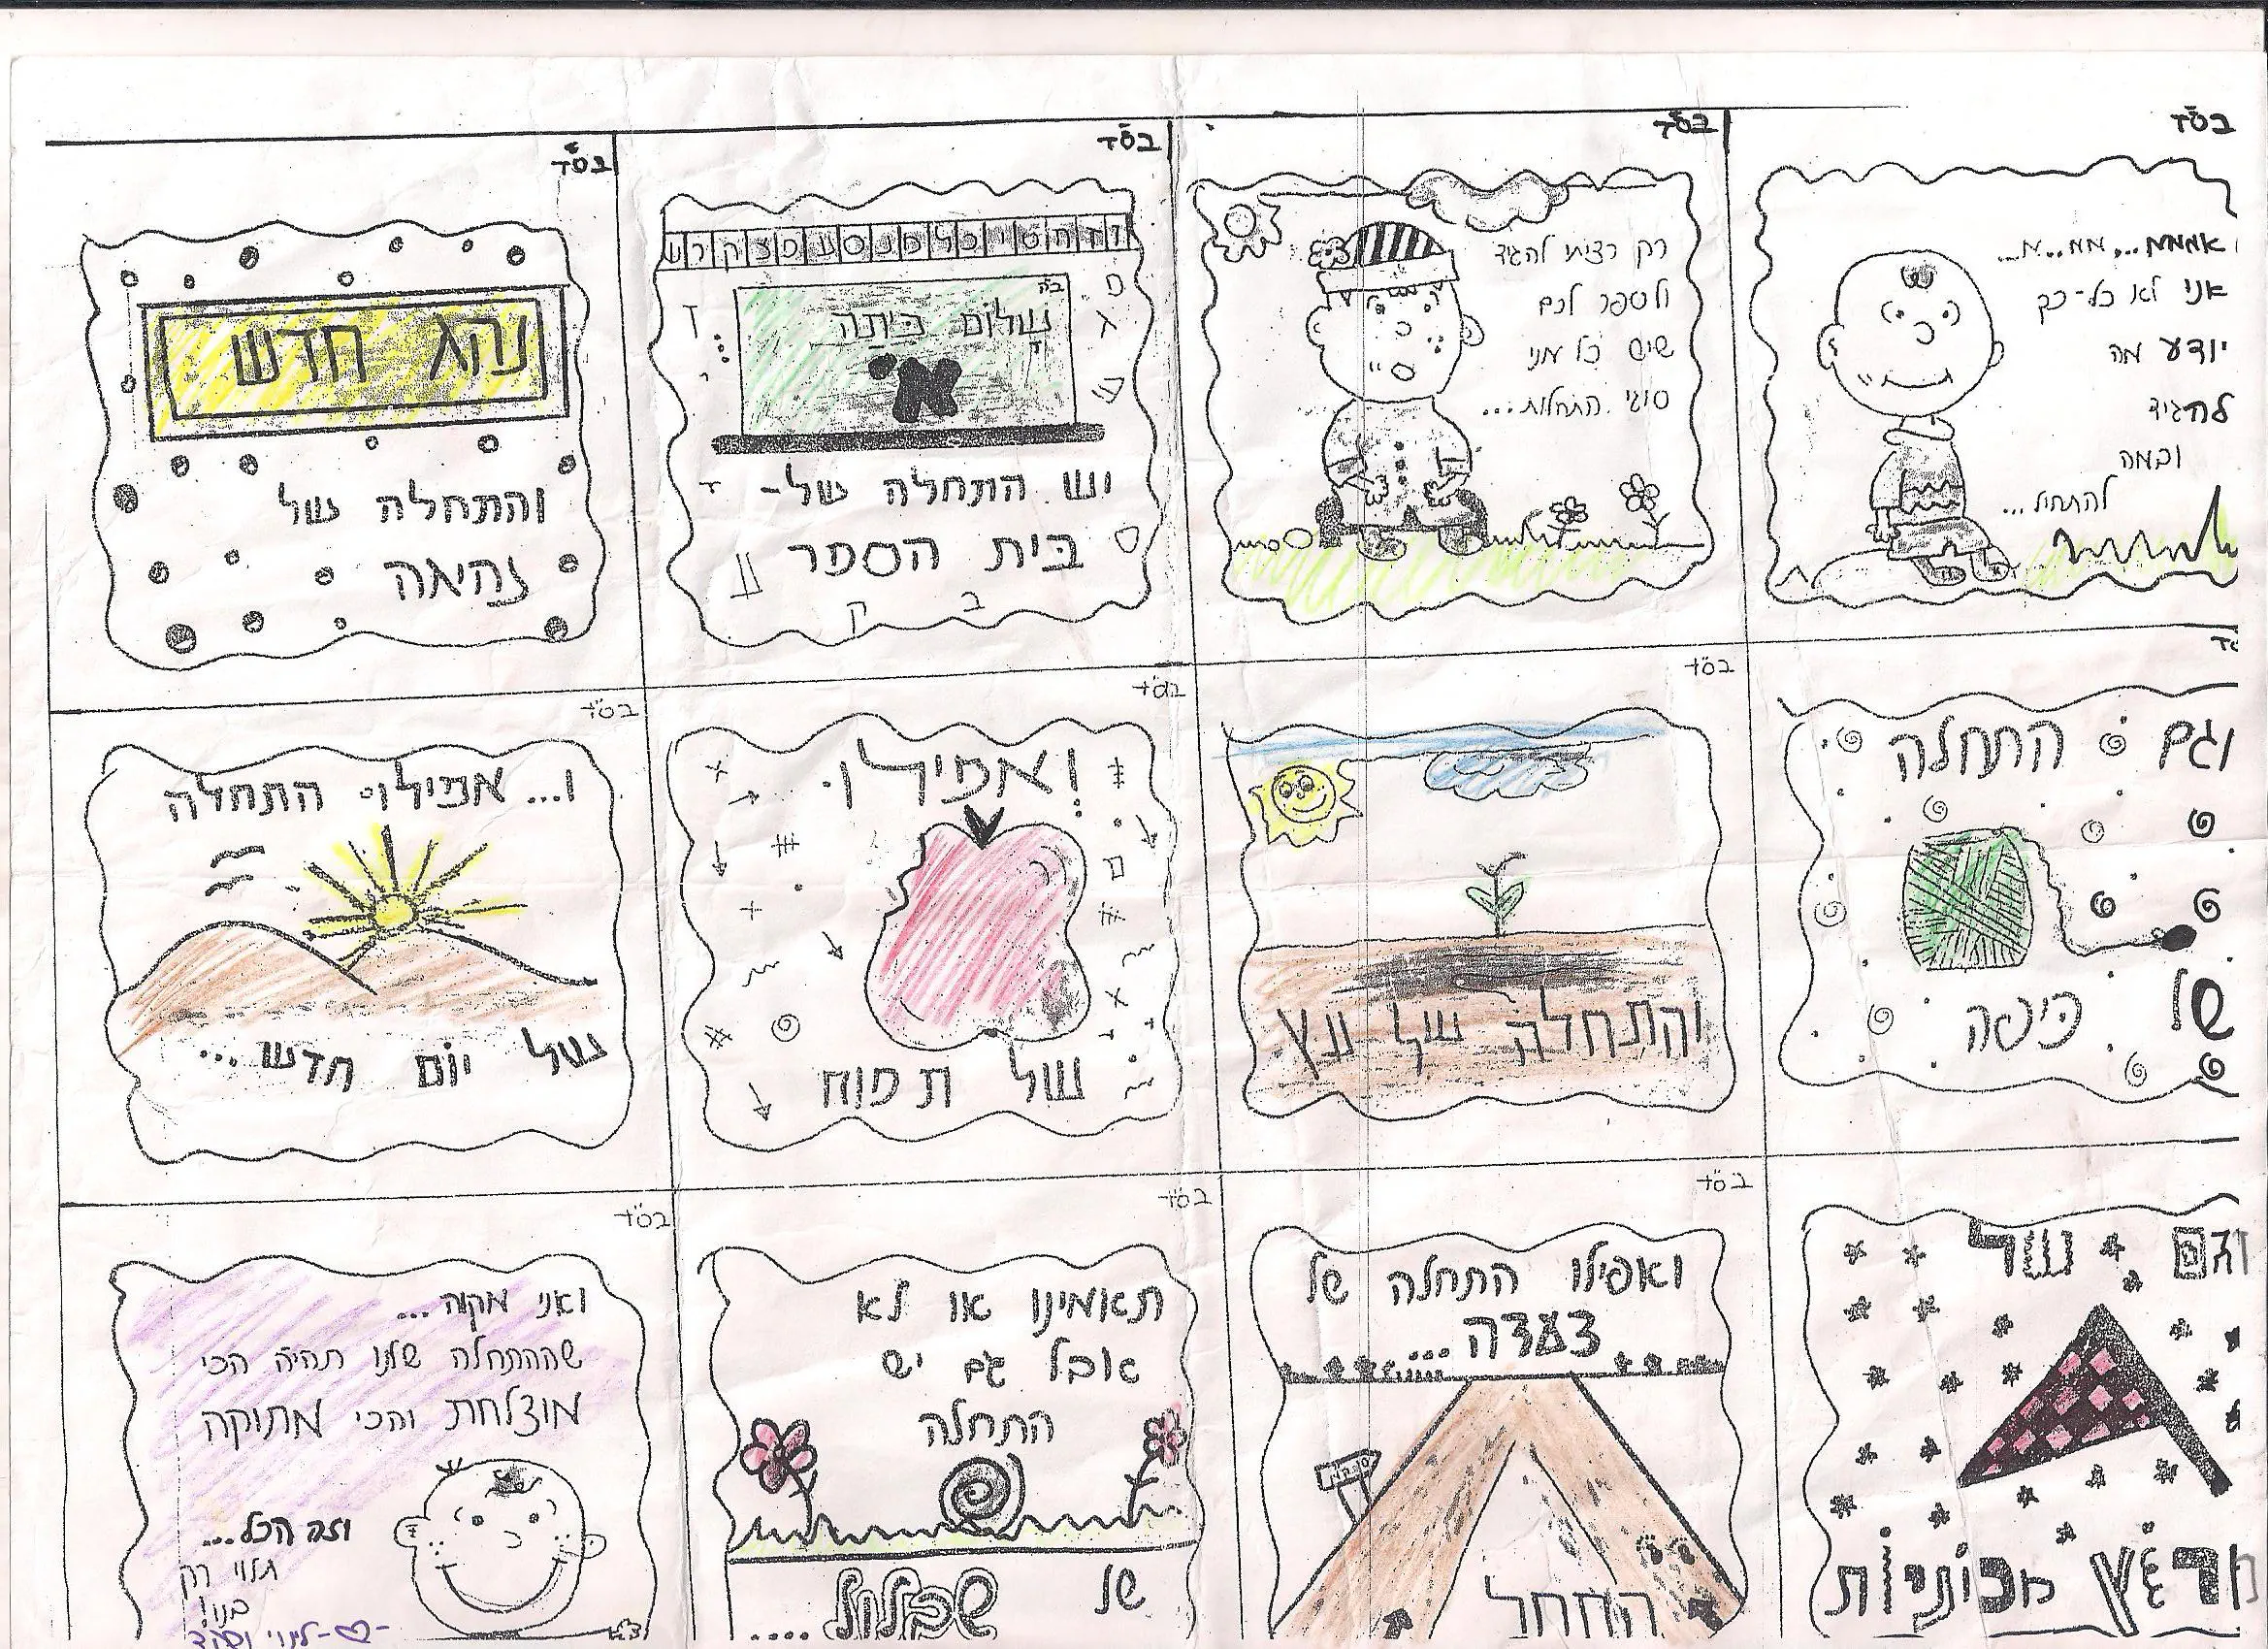 בס"ד
אממממ...ממ..מ...
אני לא כל-כך
יודע מה
להגיד
ובמה
להתחיל...
בס"ד
רק רציתי להגיד
ולספר לכם
שיש כל מני
סוגי התחלות...
בס"ד
ב"ה
שלום כיתה
א'
יש התחלה של-
בית הספר
בס"ד
נהג חדש
והתחלה של
נהיגה
וגם התחלה
של כיפה
בס"ד
והתחלה של עץ
בס"ד
ואפילו
של תפוח
בס"ד
ו... אפילו התחלה
של יום חדש...
וגם של
מרוץ מכוניות
בס"ד
ואפילו התחלה של
צעדה...
התחל
בס"ד
תאמינו או לא
אבל גם יש
התחלה
של שבלול....
בס"ד
ואני מקוה...
שההתחלה שלנו תהיה הכי
מוצלחת והכי מתוקה
וזה הכל...
תלוי רק
בנו!